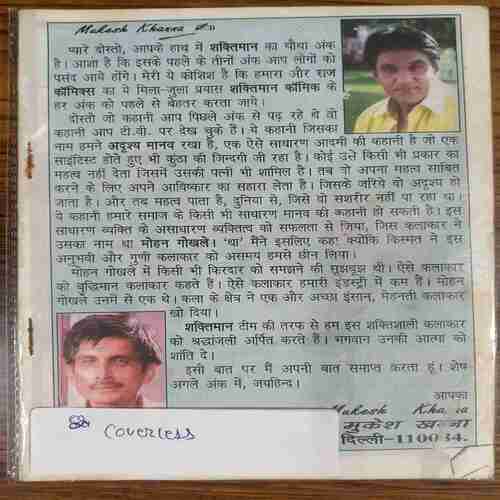 Mukesh Khanna
प्यारे दोस्तो, आपके हाथ में शक्तिमान का चौथा अंक
है। आशा है कि इसके पहले के तीनों अंक आप लोगों को
पसंद आये होंगे। मेरी ये कोशिश है कि हमारा और राज
कॉमिक्स का ये मिला-जुला प्रयास शक्तिमान कॉमिक के
हर अंक को पहले से बेहतर करता जाये।
दोस्तो जो कहानी आप पिछले अंक से पढ़ रहे थे वो
कहानी आप टी.वी. पर देख चुके हैं। ये कहानी जिसका
नाम हमने अदृश्य मानव रखा है, एक ऐसे साधारण आदमी की कहानी है जो एक
साइंटिस्ट होते हुए भी कुंठा की जिन्दगी जी रहा है। कोई उसे किसी भी प्रकार का
महत्व नहीं देता जिसमें उसकी पत्नी भी शामिल है। तब वो अपना महत्व साबित
करने के लिए अपने आविष्कार का सहारा लेता है। जिसके जरिये वो अदृश्य हो
जाता है। और तब महत्व पाता है, दुनिया से, जिसे वो सशरीर नहीं पा रहा था।
ये कहानी हमारे समाज के किसी भी साधारण मानव की कहानी हो सकती है। इस
साधारण व्यक्ति के असाधारण व्यक्तित्व को सफलता से जिया, जिस कलाकार ने
उसका नाम था मोहन गोखले। 'था' मैंने इसलिए कहा क्योंकि किस्मत ने इस
अनुभवी और गुणी कलाकार को असमय हमसे छीन लिया।
मोहन गोखले में किसी भी किरदार को समझने की सूझबूझ थी। ऐसे कलाकार
को बुद्धिमान कलाकार कहते हैं। ऐसे कलाकार हमारी इंडस्ट्री में कम हैं। मोहन
गोखले उनमें से एक थे। कला के क्षेत्र ने एक और अच्छा इंसान, मेहनती कलाकार
खो दिया।
शक्तिमान टीम की तरफ से हम इस शक्तिशाली कलाकार
को श्रद्धांजली अर्पित करते हैं। भगवान उनकी आत्मा को
शांति दे।
इसी बात पर मैं अपनी बात समाप्त करता हूं। शेष
अगले अंक में, जयहिन्द।
आपका
Mukesh Khanna
मुकेश खन्ना
दिल्ली-110034.
coverless